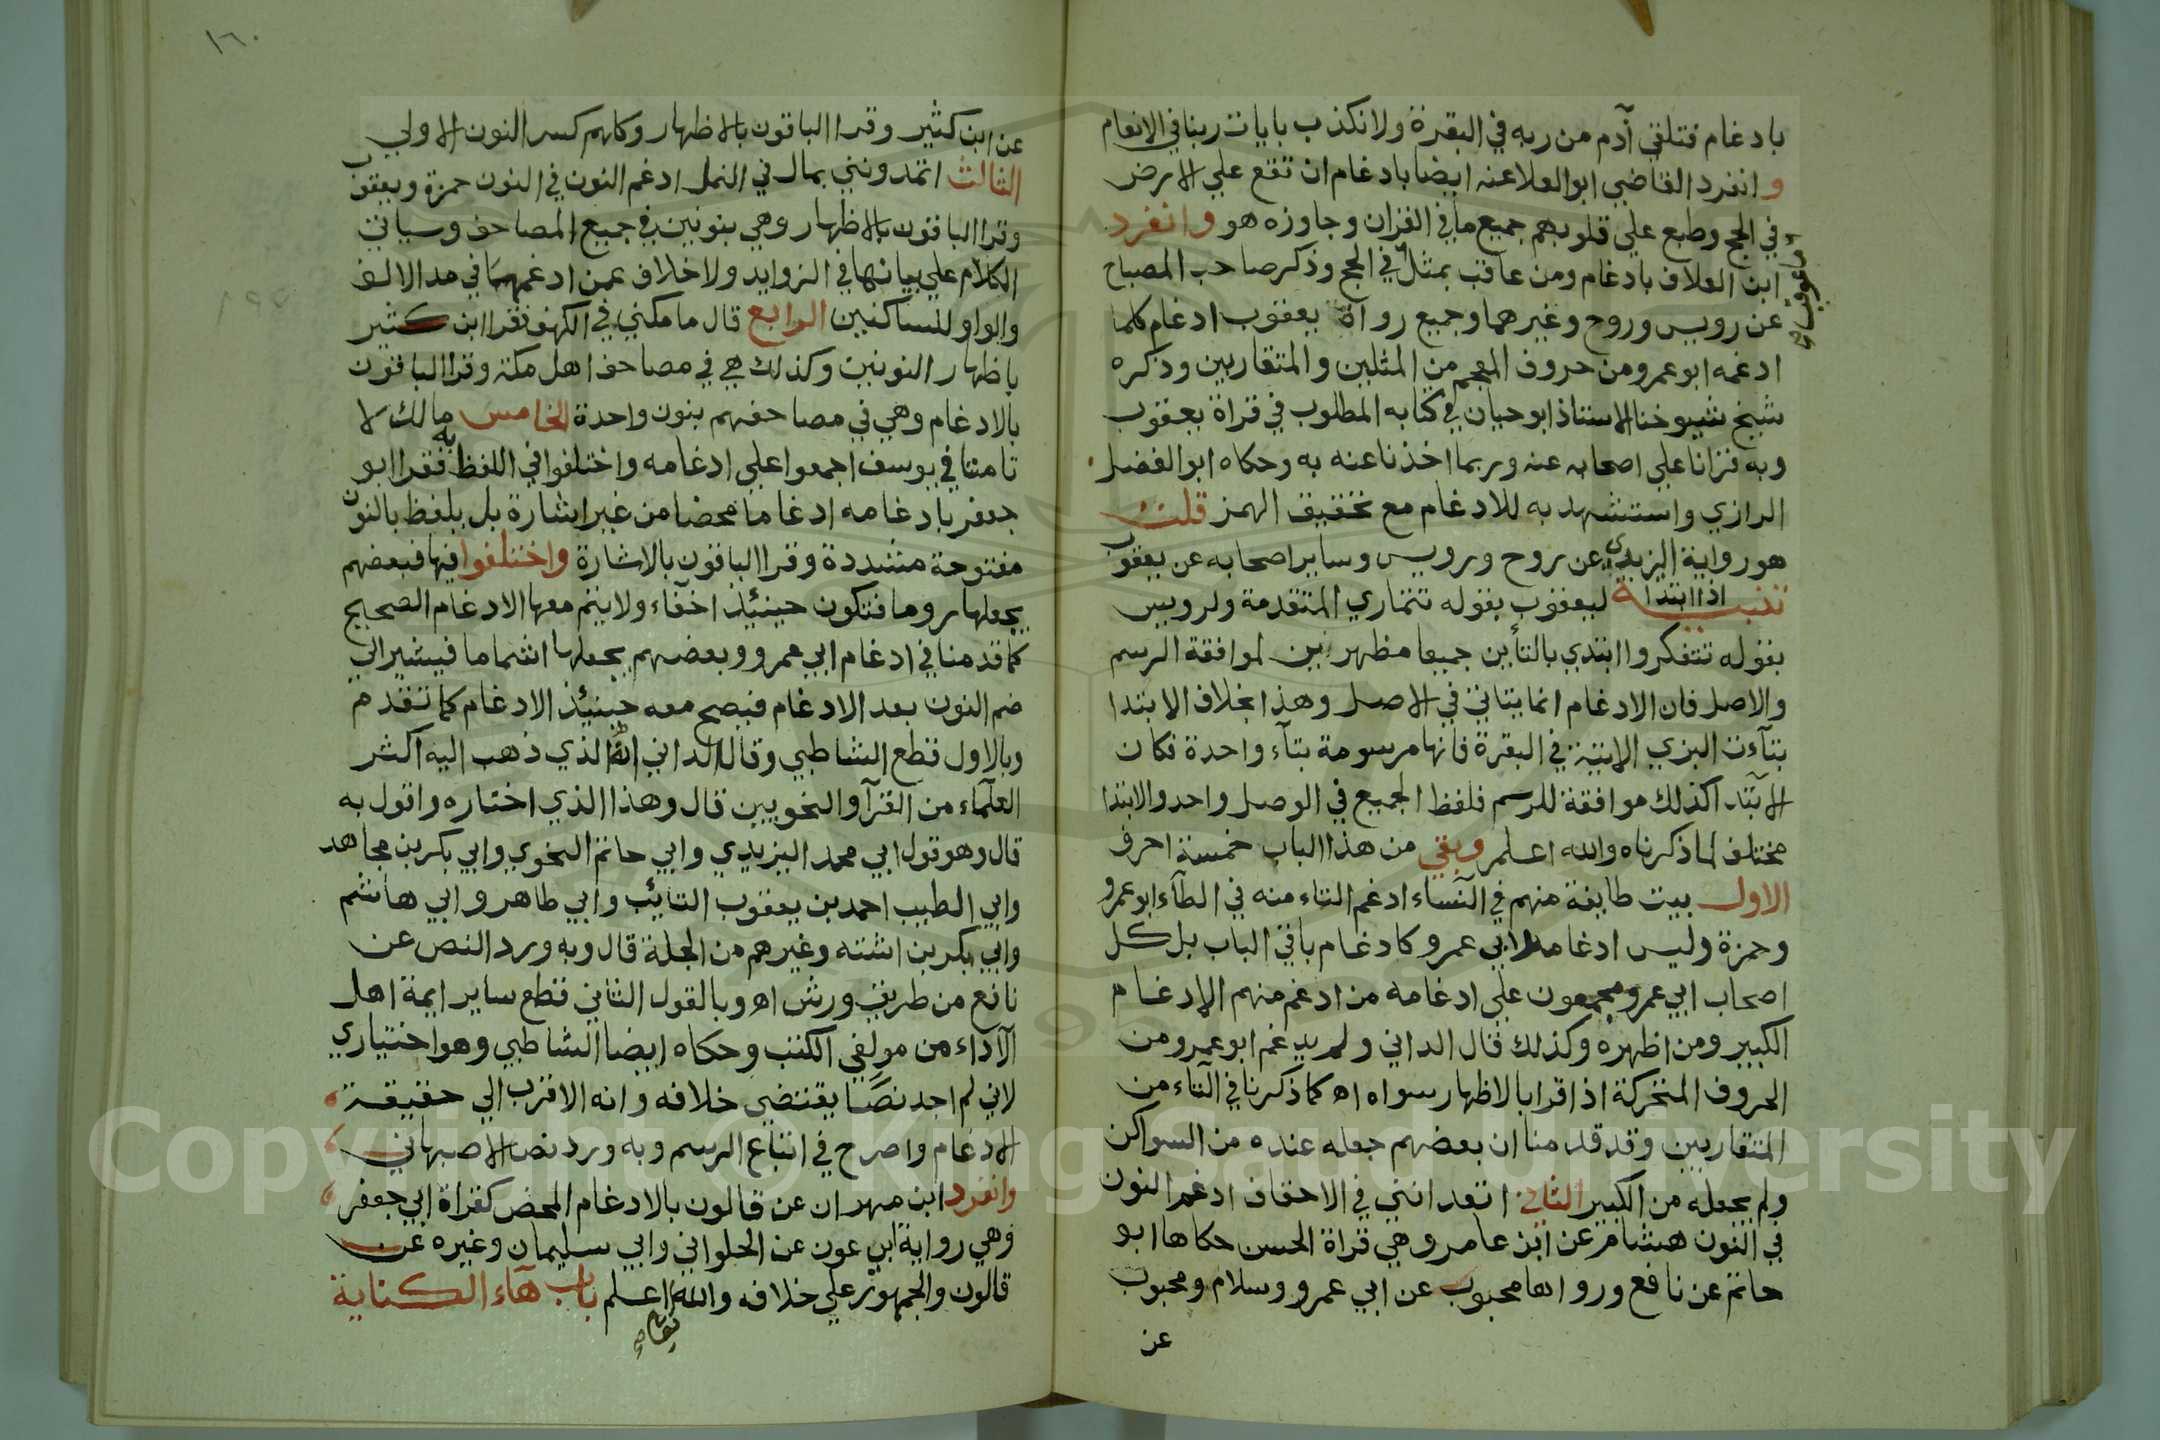 بادغام فتلقي آدم من ربه في البقرة ولا نكذب بايات ربنا في الانعام
وانفرد القاضي ابوالعلا عنه ايضا بادغام ان تقع علي الارض
في الحج وطبع علي قلوبهم جميع ما في القران وجاوزه هو وانفرد
ابن العلاف بادغام ومن عاقب بمثل في الحج وذكر صاحب المصباح
عن رويس وروح وغيرهما وجميع رواة يعقوب ادغام كلما
ادغمه ابوعمرو من حروف المعجم من المثلين والمتقاربين وذكره
شيخ شيوخنا الاستاذ ابوحيان في كتابه المطلوب في قراة يعقوب
وبه قرانا علي اصحابه عنه وربما اخذنا عنه به وحكاه ابوالفضل
الرازي واستشهد به للادغام مع تحقيق الهمز قلت
هو رواية الزبيري عن روح ورويس وساير اصحابه عن يعقوب
تنبيه اذا ابتدا ليعقوب بقوله تتماري المتقدمة ولرويس
بقوله تتفكروا ابتدي بالتأين جميعا مظهرتين لموافقة الرسم
والاصل فان الادغام انما يتاتي في الاصل وهذا بخلاف الابتدا
بتآءت البزي الاتية في البقرة فانها مرسومة بتآء واحدة فكان
الابتدا كذلك موافقة للرسم فلفظ الجميع في الوصل واحد والابتدا
مختلف لما ذكرناه والله اعلم وبقي من هذا الباب خمسة احرف
الاول بيت طايفة منهم في النساء ادغم التاء منه في الطآء ابوعمرو
وحمزة وليس ادغامه لابي عمرو كادغام باقي الباب بل كل
اصحاب ابي عمرو مجمعون علي ادغامه من ادغم منهم الادغام
الكبير ومن اظهره وكذلك قال الداني ولم يدغم ابوعمرو من
الحروف المتحركة اذا قرا بالاظهار سواه اه كما ذكرنا في التآء من
المتقاربين وقد قدمنا ان بعضهم جعله عنده من السواكن
ولم يجعله من الكبير الثاني اتعدانني في الاحقاف ادغم النون
في النون هشام عن ابن عامر وهي قراة الحسن حكاها ابو
حاتم عن نافع ورواها محبوب عن ابي عمرو وسلام ومحبوب
عن
١٦٠
عن ابن كثير وقرا الباقون بالاظهار وكلهم كسر النون الاولي
الثالث اتمدونني بمال في النمل ادغم النون في النون حمزة ويعقوب
وقرا الباقون بالاظهار وهي بنونين في جميع المصاحف وسياتي
الكلام علي بيانها في الزوايد ولا خلاف عمن ادغمهما في مد الالف
والواو للساكنين الرابع قال ما مكني في الكهف فقرا ابن كثير
باظهار النونين وكذلك هي في مصاحف اهل مكة وقرا الباقون
بالادغام وهي في مصاحفهم بنون واحدة الخامس مالك لا
تامنا في يوسف اجمعوا علي ادغامه واختلفوا في اللفظ به فقرا ابو
جعفر بادغامه ادغاما محضا من غير اشارة بل يلفظ بالنون
مفتوحة مشددة وقرا الباقون بالاشارة واختلفوا فيها فبعضهم
يجعلها روما فتكون حينئذ اخفاء ولا يتم معها الادغام الصحيح
كما قدمنا في ادغام ابي عمرو وبعضهم يجعلها اشماما فيشير الي
ضم النون بعد الادغام فيصح معه حينئذ الادغام كما تقدم
وبالاول قطع الشاطبي وقال الداني انه الذي ذهب اليه اكثر
العلمآء من القرآ والنحويين قال وهذا الذي اختاره واقول به
قال وهو قول ابي محمد اليزيدي وابي حاتم النحوي وابي بكر بن مجاهد
وابي الطيب احمد بن يعقوب التايب وابي طاهر وابي هاشم
وابي بكر بن اشته وغيرهم من الجلة قال وبه ورد النص عن
نافع من طريق ورش اه وبالقول الثاني قطع ساير ايمة اهل
الآداء من مولفي الكتب وحكاه ايضا الشاطبي وهو اختياري
لاني لم اجد نصا يقتضي خلافه وانه الاقرب الي حقيقة
الادغام واصرح في اتباع الرسم وبه ورد نص الاصبهاني
وانفرد ابن مهران عن قالون بالادغام المحض كقراة ابي جعفر
وهي رواية ابن عون عن الحلواني وابي سليمان وغيره عن
قالون والجمهور علي خلافه والله اعلم باب هآء الكناية
Copyright © King Saud University